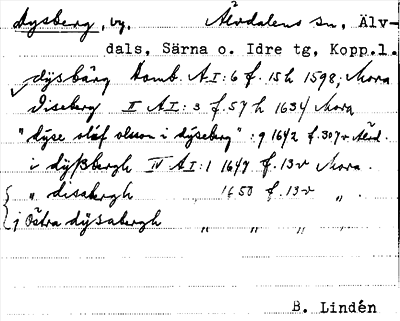 Dysberg, by. Älvdalens sn, Älv-
dals, Särna o. Idre tg, Kopp.l.
dysbärg Domb. AI:6 f. 15h 1598, Mora
Diseberg II AI:3 f. 57h 1634 Mora
"dyse olof olsson i dyseberg": 9 1642 f. 307v Älvd.
i dyßbergh IV AI:1 1647 f. 13v Mora.
" disabergh 1650 f. 13v " .
j Östra dysabergh " " " "
B. Lindén